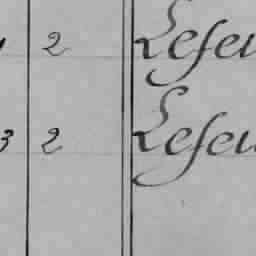 2 Lefeu
3 2 Lefeu